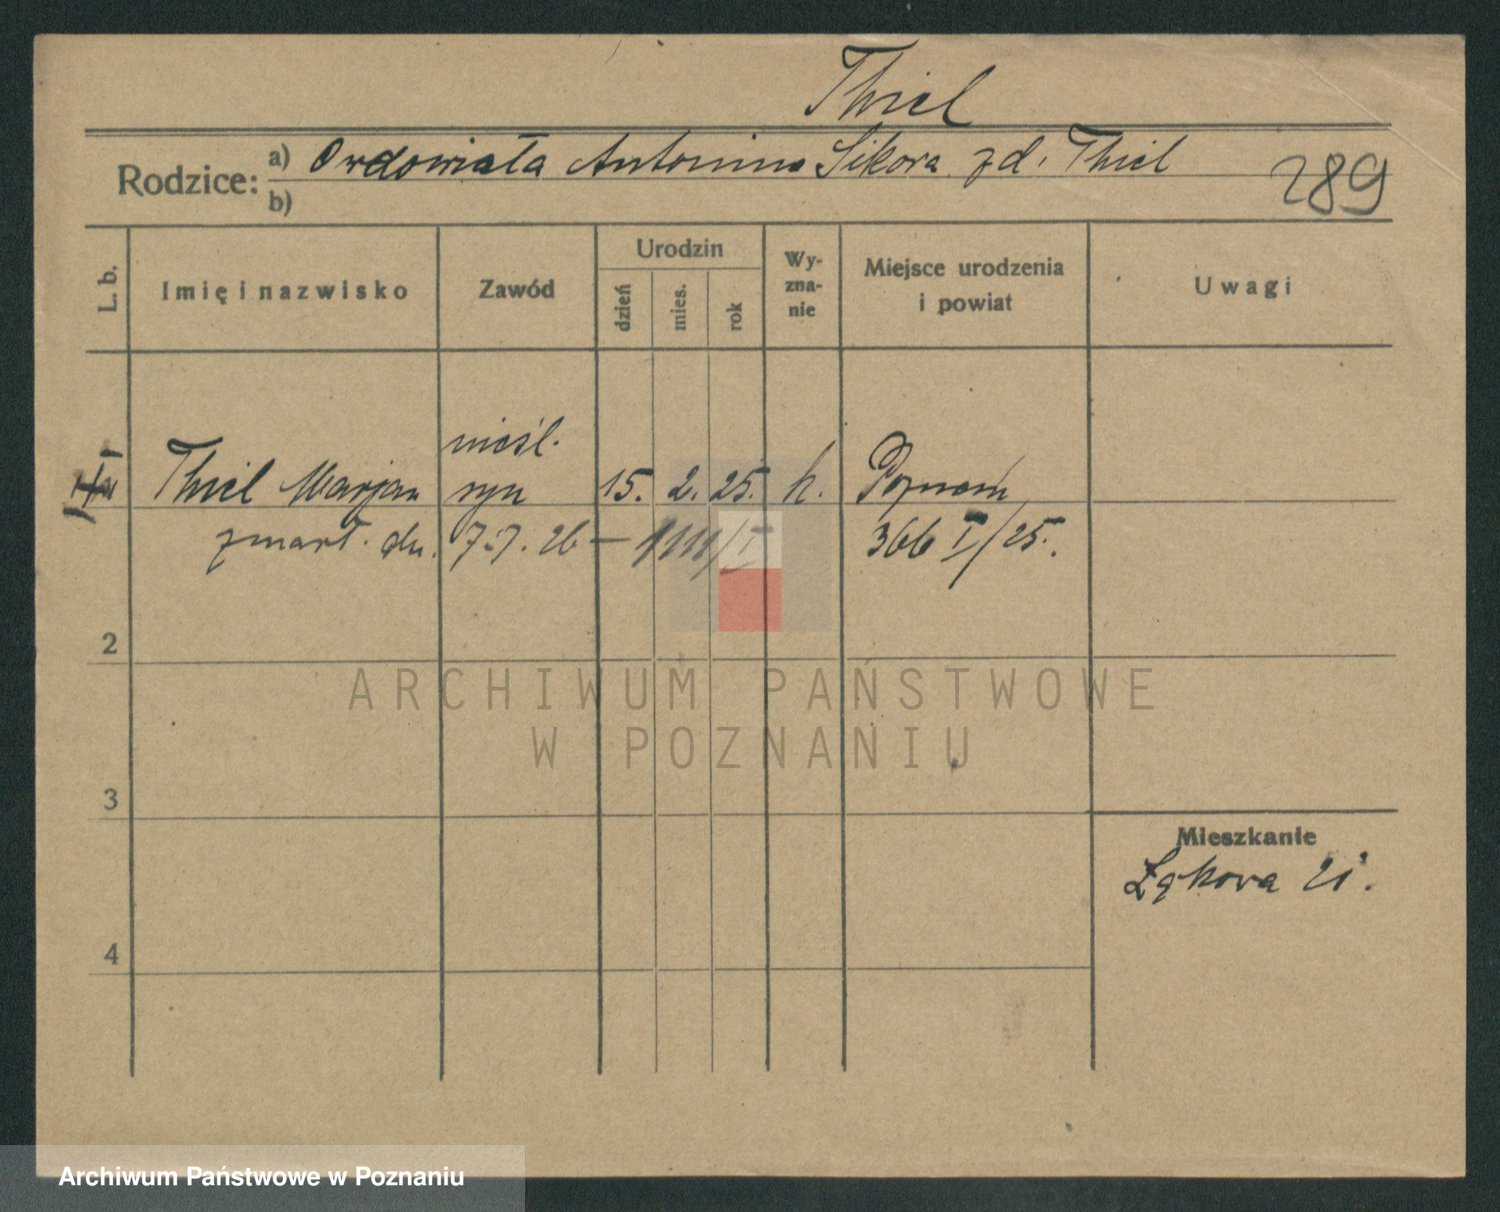 Thiel
Rodzice: a) Owdowiała Antonina Sikora zd. Thiel
b)
289
L. b.
Imię i nazwisko
Zawód
Urodzin
dzień
mies.
rok
Wy-
zna-
nie
Miejsce urodzenia
i powiat
Uwagi
nieśl.
Thiel Marjan syn 15. 2. 25. k. Poznań
zmarł. dn. 7.7.26 — 1111/I 366 I/25.
2
3
4
Mieszkanie
Łąkowa 21.
ARCHIWUM PAŃSTWOWE
W POZNANIU
Archiwum Państwowe w Poznaniu